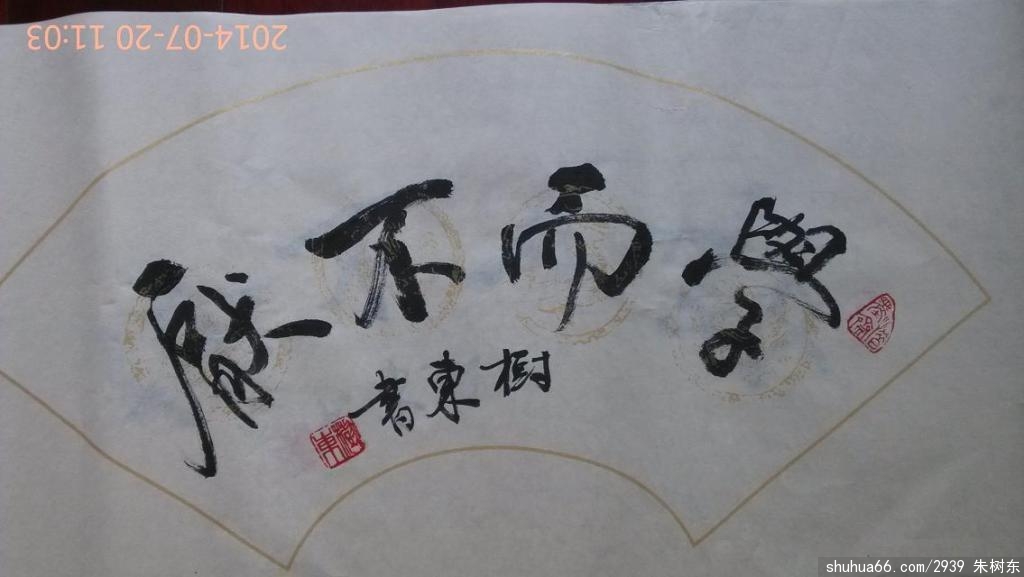 學而不厭
樹東書
樹東
2014-07-20 11:03
shuhua66.com/2939 朱树东